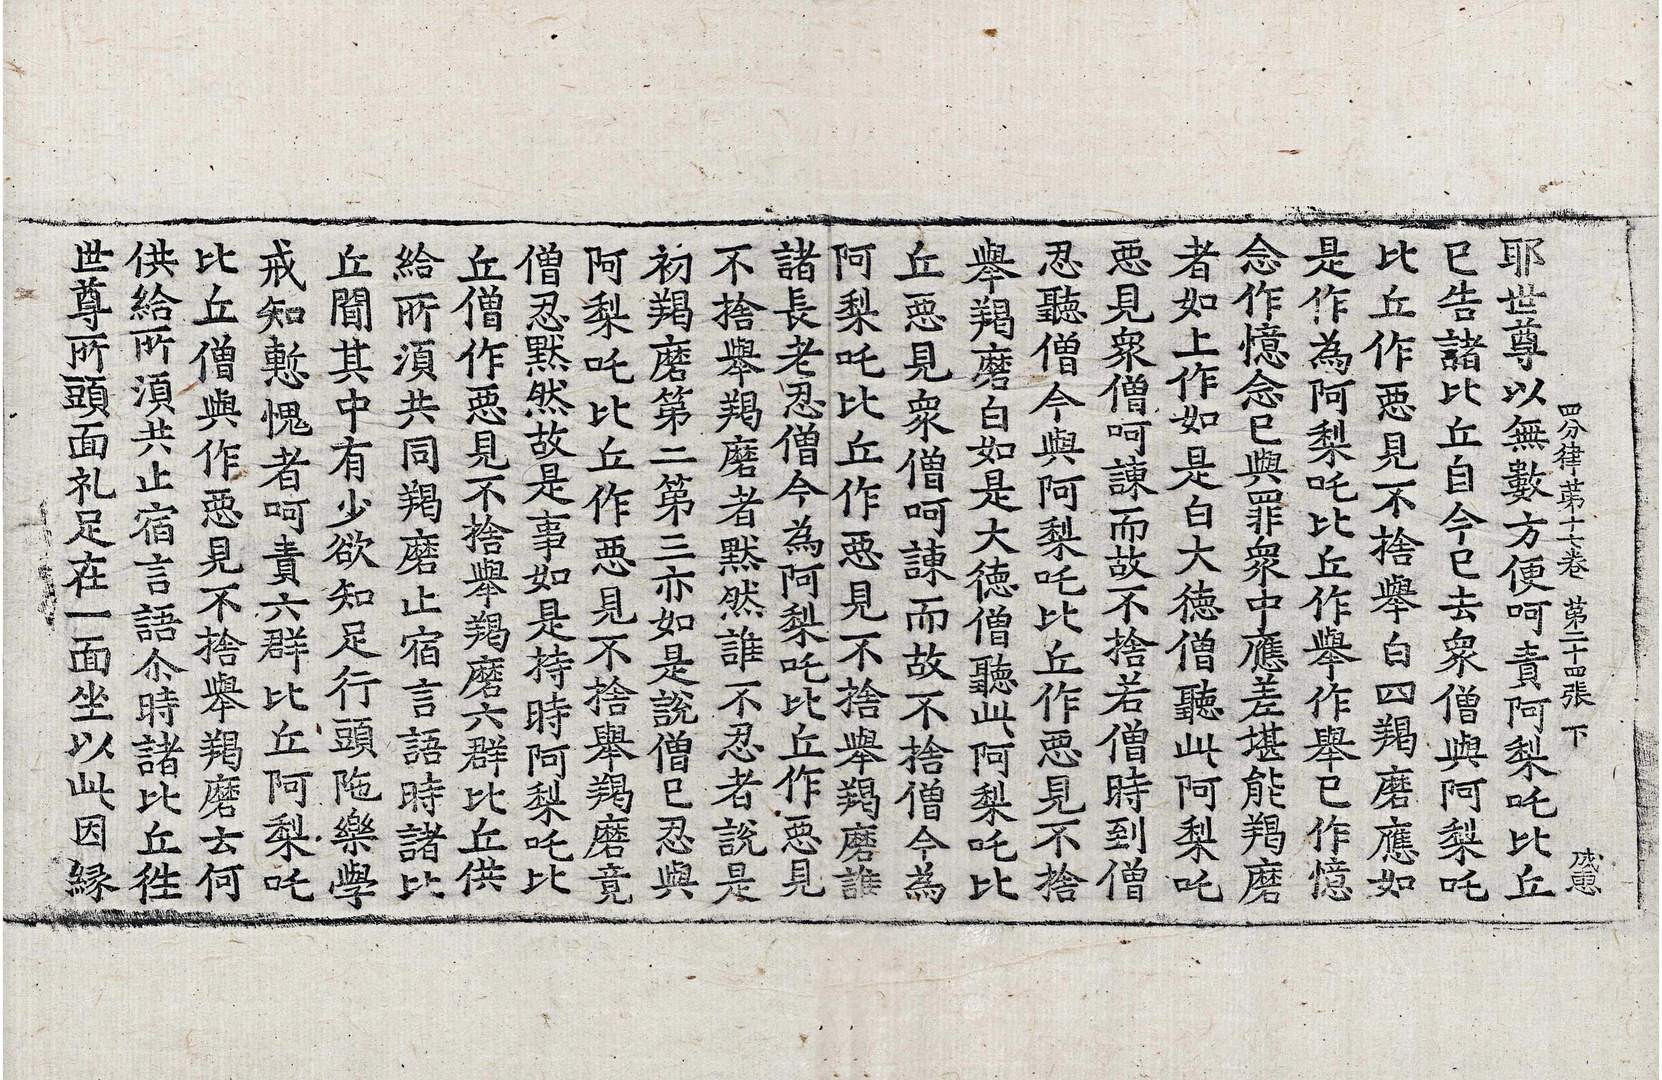 四分律苐十七卷 苐二十四張 下
耶世尊以無數方便呵責阿梨吒比丘
已告諸比丘自今已去衆僧與阿梨吒
比丘作惡見不捨舉白四羯磨應如
是作為阿梨吒比丘作舉作舉已作憶
念作憶念已與罪衆中應差堪能羯磨
者如上作如是白大徳僧聽此阿梨吒
惡見衆僧呵諫而故不捨若僧時到僧
忍聽僧今與阿梨吒比丘作惡見不捨
舉羯磨白如是大徳僧聽此阿梨吒比
丘惡見衆僧呵諫而故不捨僧今為
阿梨吒比丘作惡見不捨舉羯磨誰
諸長老忍僧今為阿梨吒比丘作惡見
不捨舉羯磨者默然誰不忍者說是
初羯磨苐二苐三亦如是說僧已忍與
阿梨吒比丘作惡見不捨舉羯磨竟
僧忍默然故是事如是持時阿梨吒比
丘僧作惡見不捨舉羯磨六群比丘供
給所湏共同羯磨止宿言語時諸比
丘聞其中有少欲知足行頭陁樂學
戒知慙愧者呵責六群比丘阿梨吒
比丘僧與作惡見不捨舉羯磨去何
供給所湏共止宿言語尒時諸比丘徃
世尊所頭面礼足在一面坐以此因縁